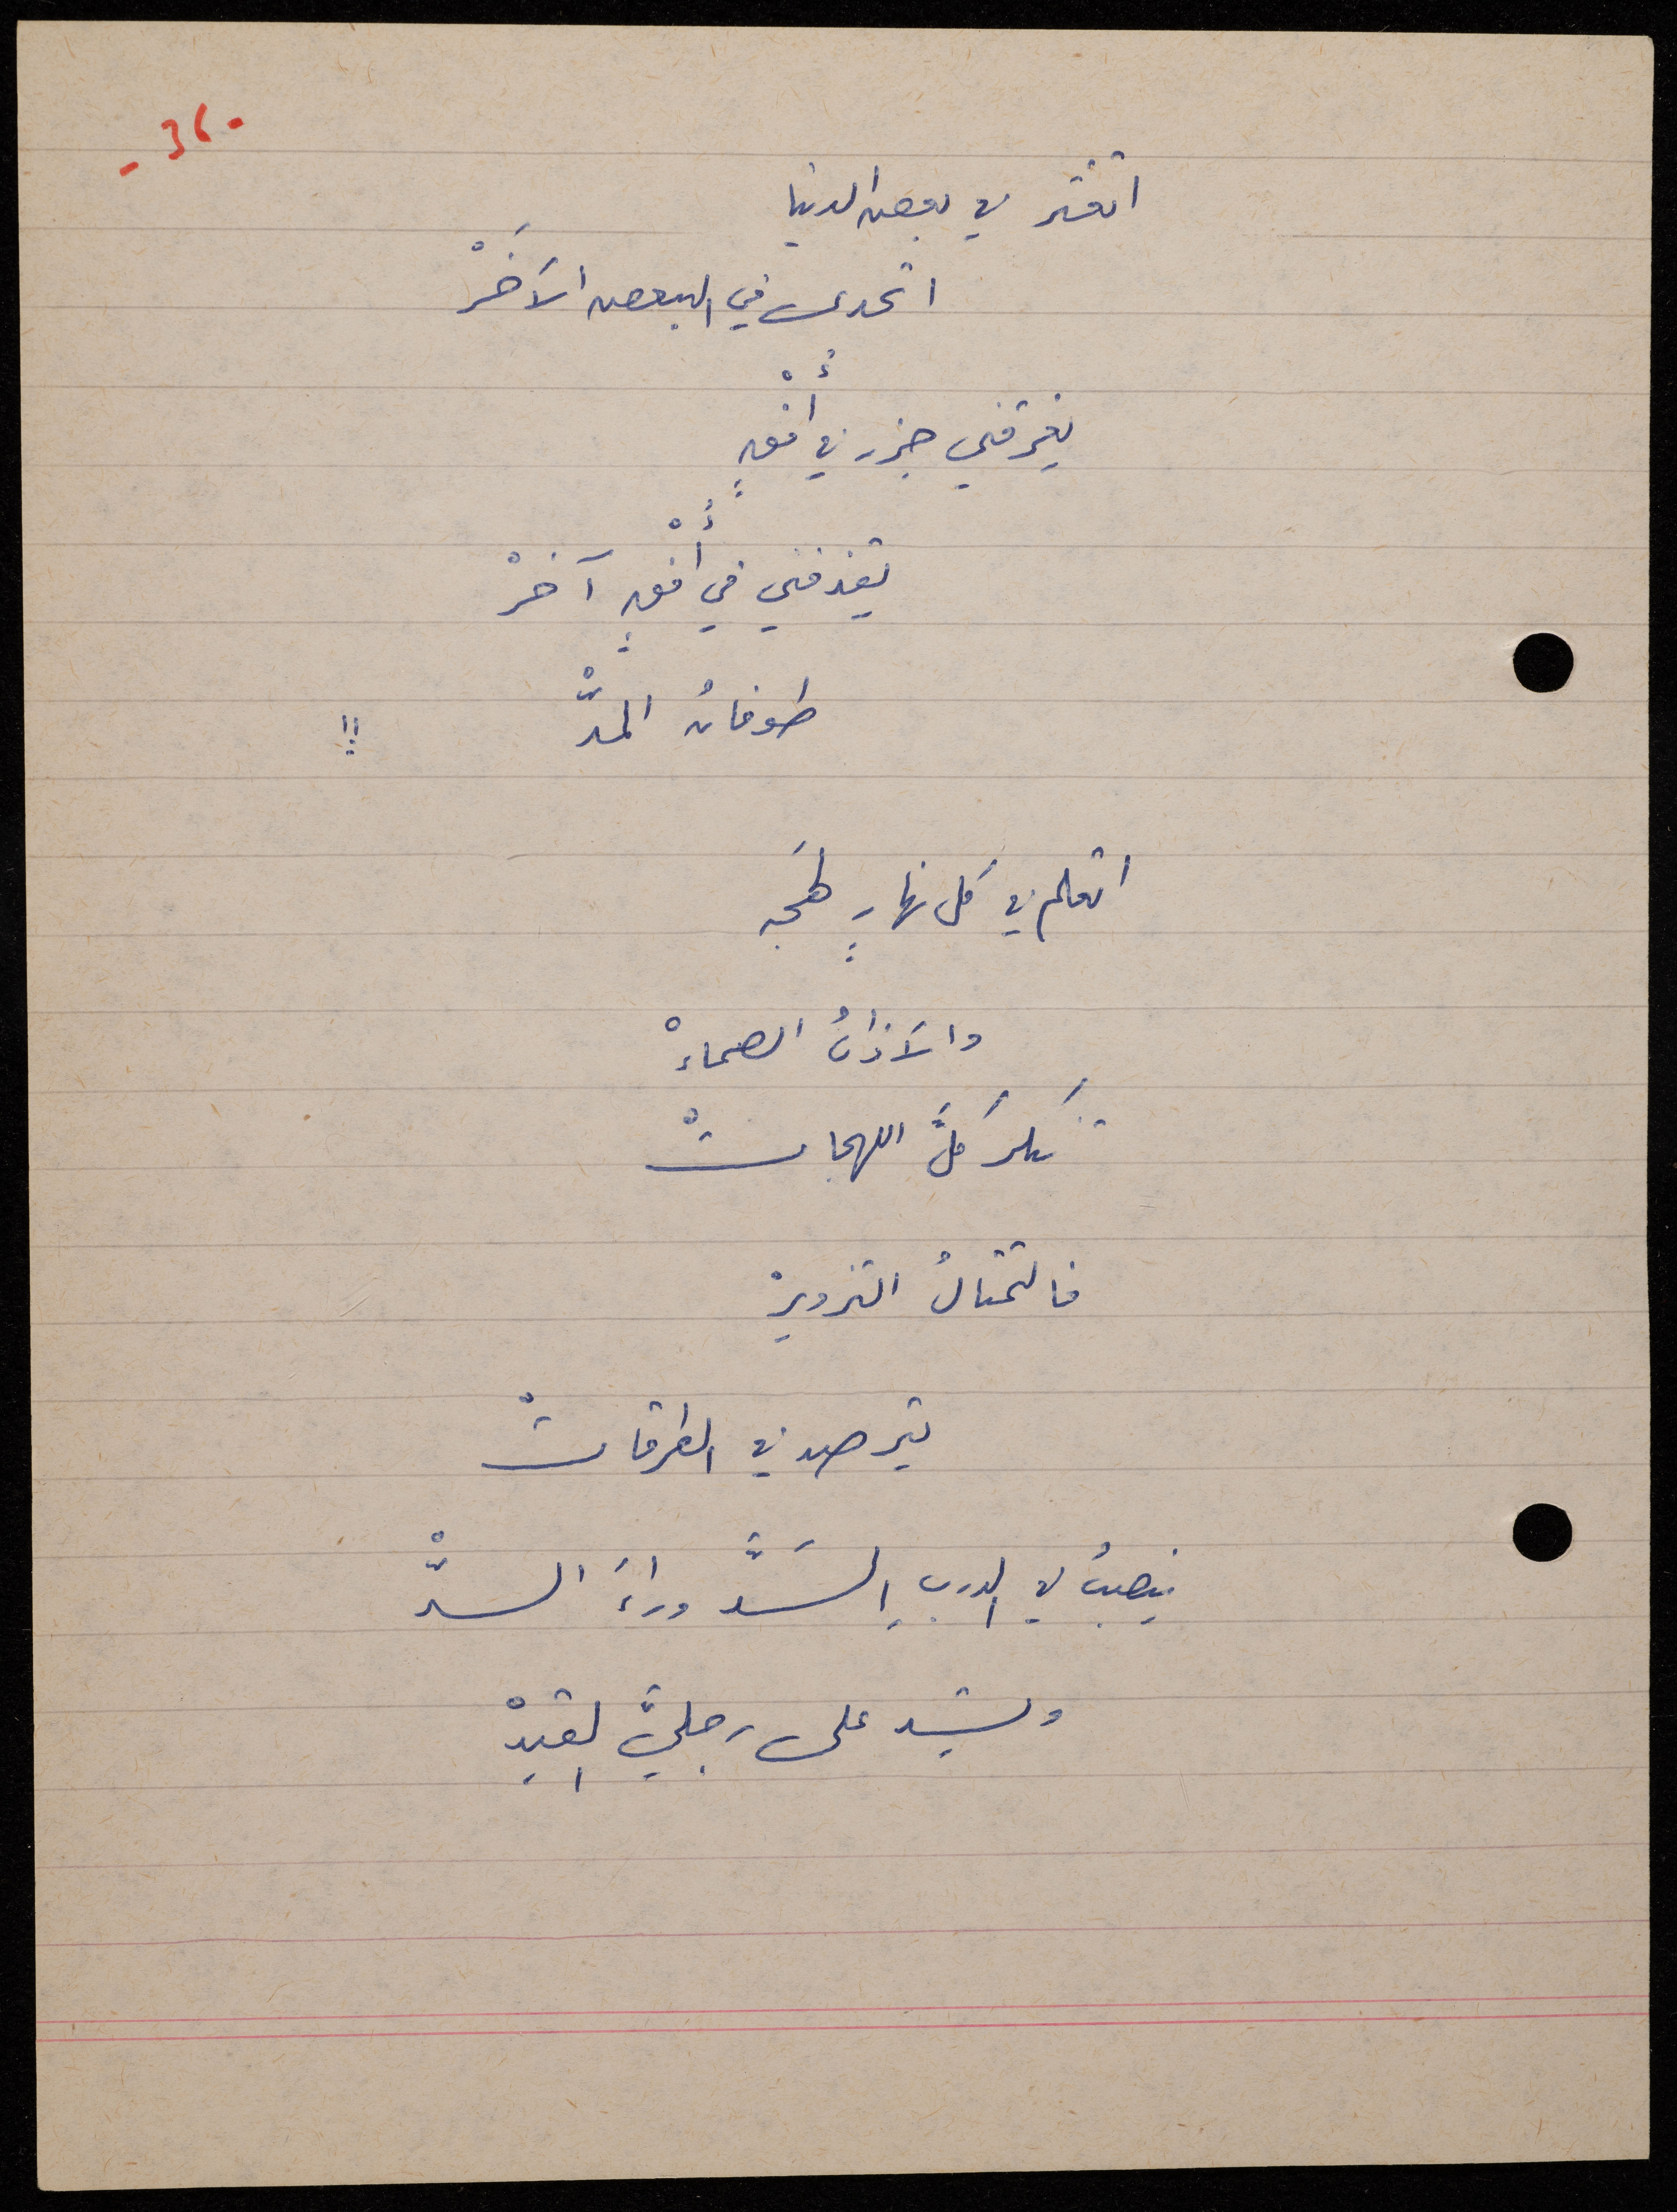 - 36 -
اتعثر في بعض الدنيا
اتحدى في البعض الآخَرْ
يغرقني جزر في أُفْقٍ
يقذفني في أُفْقٍ آخرْ
طوفانُ المدّْ !!
اتعلم في كل نهارٍ لهَجه
والآذانُ الصماءْ
تنكرَ كلَّ اللهجاتْ
فالتمثالُ التزويرْ
يترصد في الطرقاتْ
ينصبُ في الدربِ السَدَّ وراءَ السدّْ
ويشد على رجليَّ القيدْ